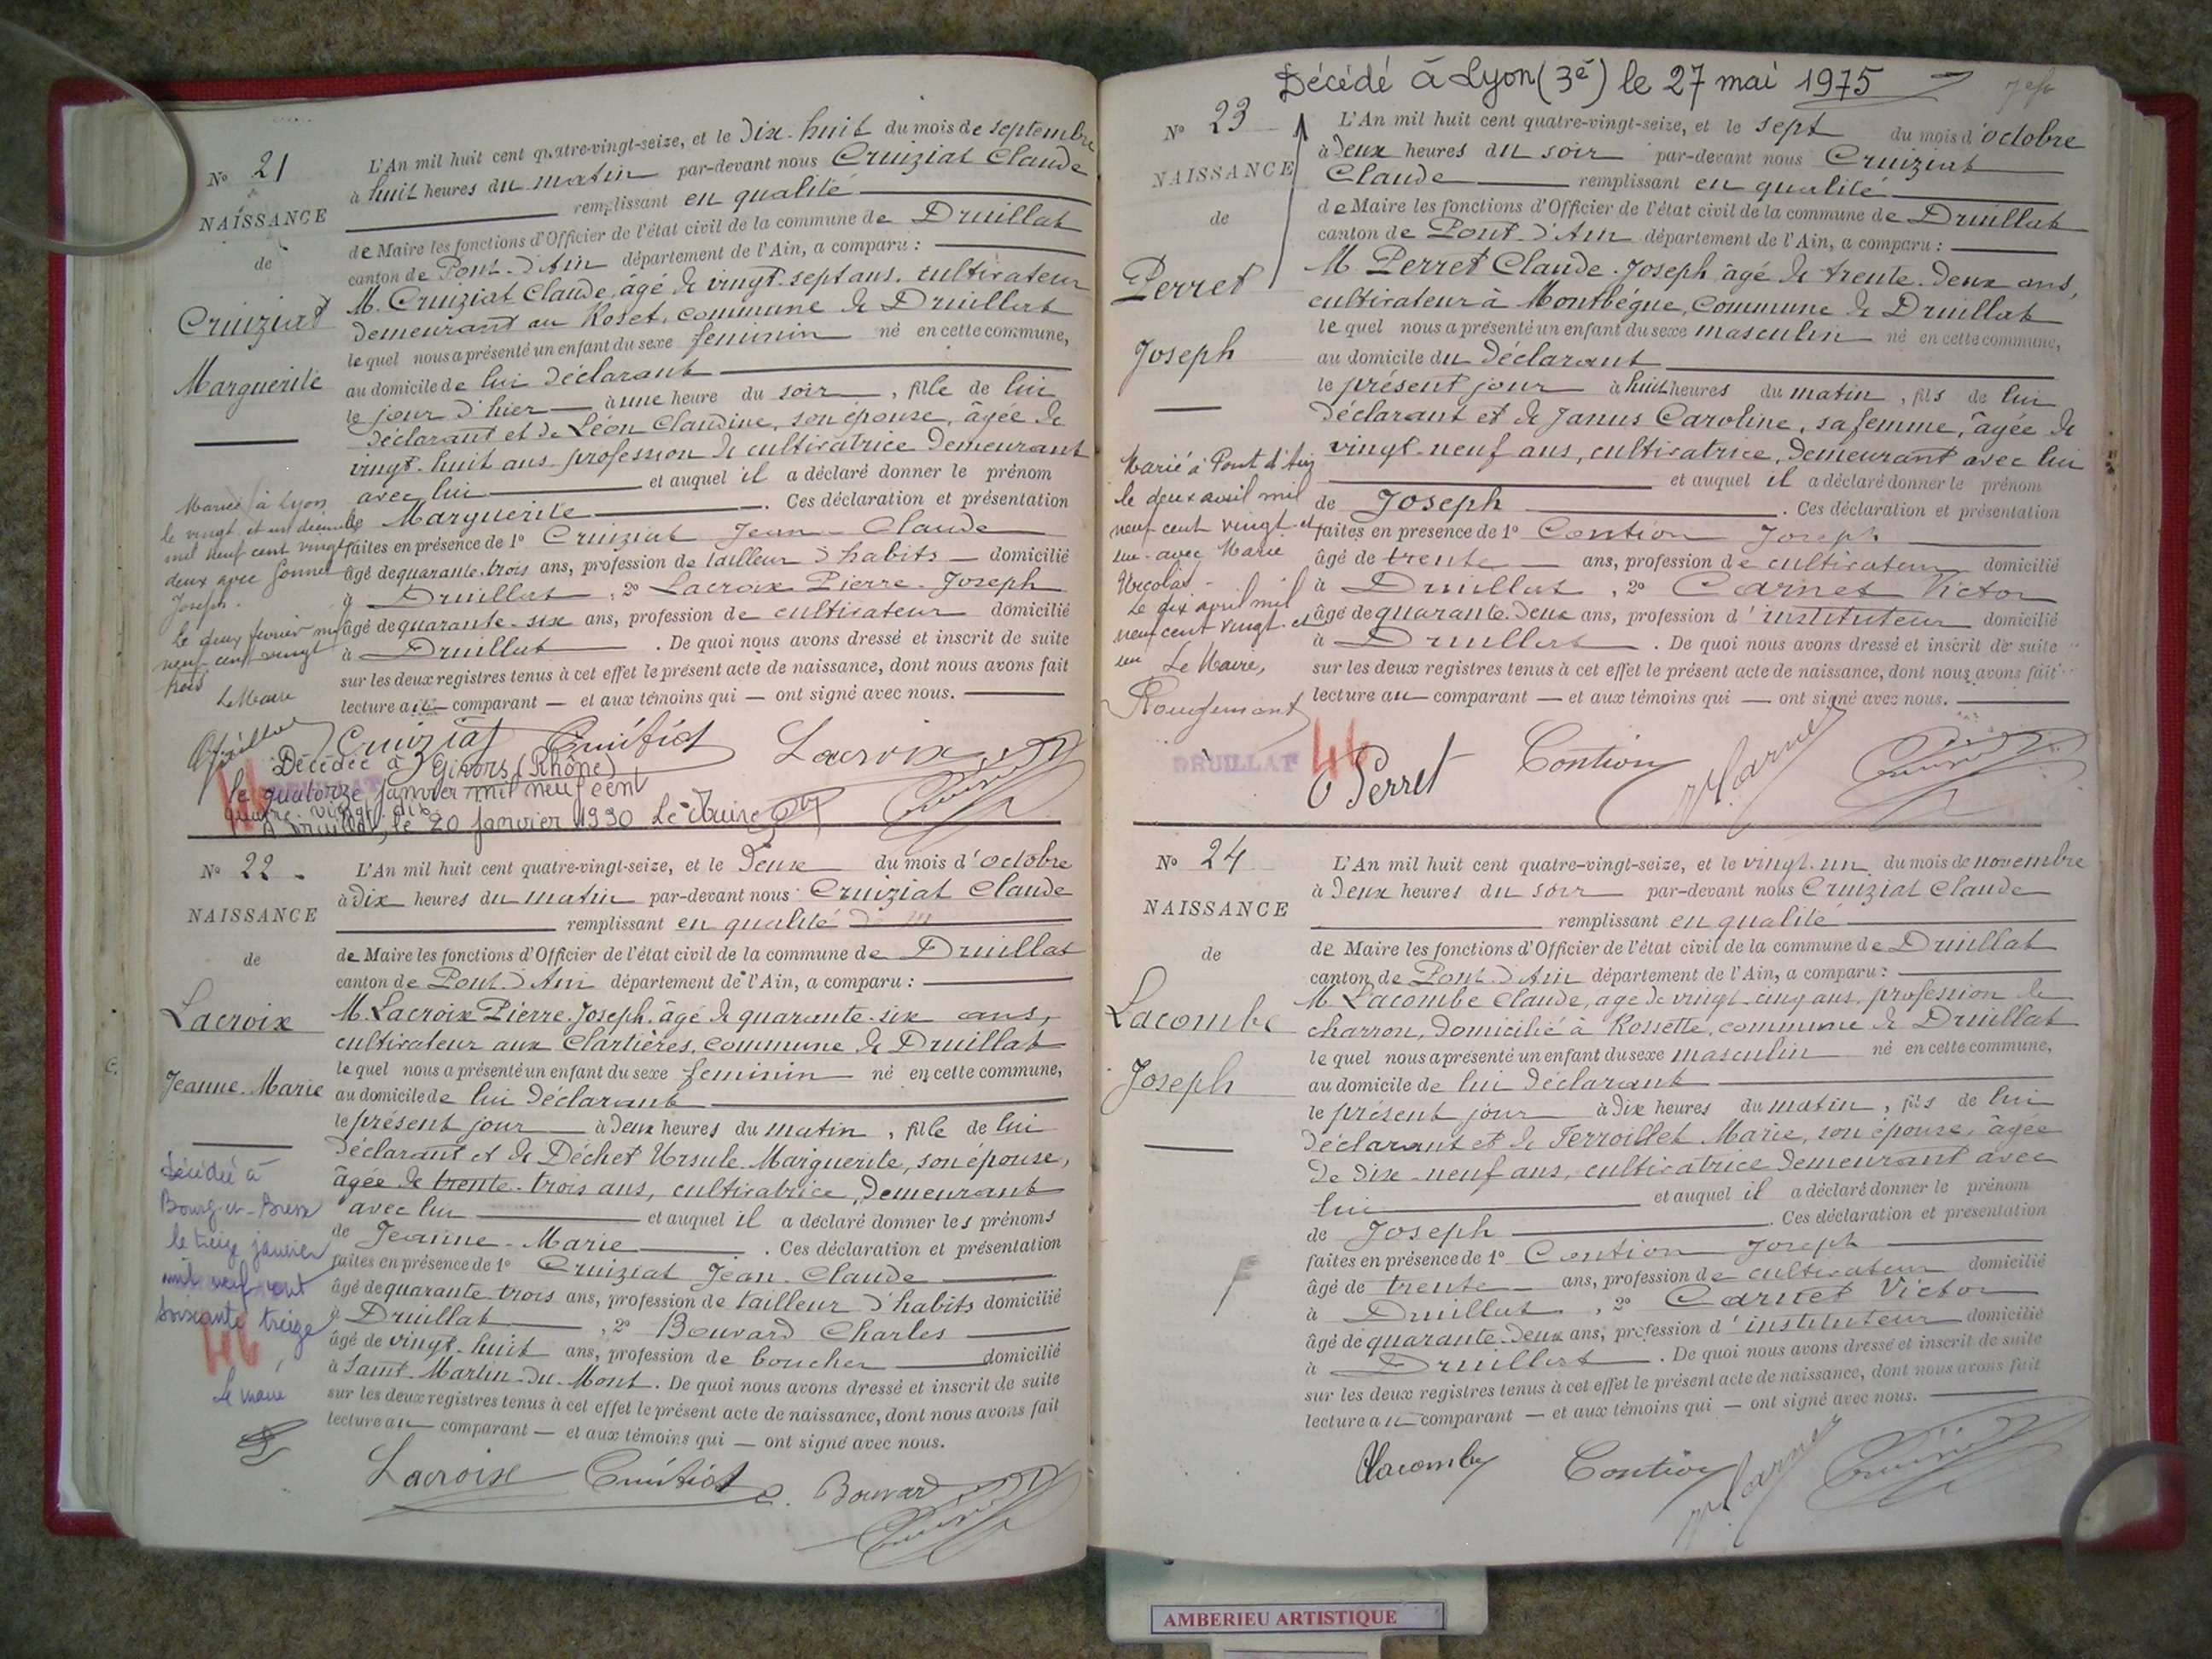 N° 21
NAISSANCE
de
Cruiziat
Marguerite
L'An mil huit cent quatre-vingt-seize, et le dix-huit du mois de septembre
à huit heures du matin par-devant nous Cruiziat Claude
remplissant en qualité
de Maire les fonctions d'Officier de l'état civil de la commune de Druillat
canton de Pont-d'Ain département de l'Ain, a comparu :
M. Cruiziat Claude, âgé de vingt-sept ans, cultivateur
demeurant au Roset, commune de Druillat
le quel nous a présenté un enfant du sexe feminin né en cette commune,
au domicile de lui déclarant
le jour d'hier à une heure du soir, fille de lui
déclarant et de Léon Claudine, son épouse, âgée de
vingt-huit ans profession de cultivatrice demeurant
avec lui et auquel il a déclaré donner le prénom
de Marguerite. Ces déclaration et présentation
faites en présence de 1° Cruiziat Jean-Claude
âgé de quarante-trois ans, profession de tailleur d'habits domicilié
à Druillat, 2° Lacroix Pierre-Joseph
âgé de quarante-six ans, profession de cultivateur domicilié
à Druillat. De quoi nous avons dressé et inscrit de suite
sur les deux registres tenus à cet effet le présent acte de naissance, dont nous avons fait
lecture au comparant — et aux témoins qui — ont signé avec nous.
Mariée à Lyon
le vingt et un décembre
mil neuf cent vingt
deux avec
Joseph.
le deux fevrier mil
neuf cent vingt
trois
Le Maire
Cruiziat Cruiziat Lacroix
Décédée à Givors (Rhône)
le quatorze janvier mil neuf cent
quatre-vingt-dix
A Druillat, le 20 janvier 1990 Le Maire
N° 22
NAISSANCE
de
Lacroix
Jeanne-Marie
L'An mil huit cent quatre-vingt-seize, et le deux du mois d'octobre
à dix heures du matin par-devant nous Cruiziat Claude
remplissant en qualité
de Maire les fonctions d'Officier de l'état civil de la commune de Druillat
canton de Pont-d'Ain département de l'Ain, a comparu :
M. Lacroix Pierre-Joseph, âgé de quarante-six ans,
cultivateur aux Clartières, commune de Druillat
le quel nous a présenté un enfant du sexe feminin né en cette commune,
au domicile de lui déclarant
le présent jour à deux heures du matin, fille de lui
déclarant et de Déchet Ursule-Marguerite, son épouse,
âgée de trente-trois ans, cultivatrice, demeurant
avec lui et auquel il a déclaré donner les prénoms
de Jeanne-Marie. Ces déclaration et présentation
faites en présence de 1° Cruiziat Jean-Claude
âgé de quarante-trois ans, profession de tailleur d'habits domicilié
à Druillat, 2° Bouvard Charles
âgé de vingt-huit ans, profession de boucher domicilié
à Saint-Martin-du-Mont. De quoi nous avons dressé et inscrit de suite
sur les deux registres tenus à cet effet le présent acte de naissance, dont nous avons fait
lecture au comparant — et aux témoins qui — ont signé avec nous.
Décédée à
Bourg-en-Bresse
le treize janvier
mil neuf cent
soixante treize
46
Le maire
Lacroix Cruiziat C. Bouvard
Décédé à Lyon (3è) le 27 mai 1975
N° 23
NAISSANCE
de
Perret
Joseph
L'An mil huit cent quatre-vingt-seize, et le sept du mois d'octobre
à deux heures du soir par-devant nous Cruiziat
Claude remplissant en qualité
de Maire les fonctions d'Officier de l'état civil de la commune de Druillat
canton de Pont-d'Ain département de l'Ain, a comparu :
M Perret Claude-Joseph âgé de trente-deux ans,
cultivateur à Montbégue, commune de Druillat
le quel nous a présenté un enfant du sexe masculin né en cette commune,
au domicile du déclarant
le présent jour à huit heures du matin, fils de lui
déclarant et de Janus Caroline, sa femme, âgée de
vingt-neuf ans, cultivatrice, demeurant avec lui
et auquel il a déclaré donner le prénom
de Joseph. Ces déclaration et présentation
faites en présence de 1° Contion Joseph
âgé de trente ans, profession de cultivateur domicilié
à Druillat, 2° Carnet Victor
âgé de quarante-deux ans, profession d'instituteur domicilié
à Druillat. De quoi nous avons dressé et inscrit de suite
sur les deux registres tenus à cet effet le présent acte de naissance, dont nous avons fait
lecture au comparant — et aux témoins qui — ont signé avec nous.
Marié à Pont d'Ain
le deux avril mil
neuf cent vingt et
un avec Marie
Nicolas.
Le dix april mil
neuf cent vingt et
un Le Maire,
Rougemont
DRUILLAT
46
Perret Contion Carnet
N° 24
NAISSANCE
de
Lacombe
Joseph
L'An mil huit cent quatre-vingt-seize, et le vingt-un du mois de novembre
à deux heures du soir par-devant nous Cruiziat Claude
remplissant en qualité
de Maire les fonctions d'Officier de l'état civil de la commune de Druillat
canton de Pont-d'Ain département de l'Ain, a comparu :
M. Lacombe Claude, âgé de vingt-cinq ans, profession de
charron, domicilié à Rossette, commune de Druillat
le quel nous a présenté un enfant du sexe masculin né en cette commune,
au domicile de lui déclarant
le présent jour à dix heures du matin, fils de lui
déclarant et de Ferroillet Marie, son épouse, âgée
de dix-neuf ans, cultivatrice demeurant avec
lui et auquel il a déclaré donner le prénom
de Joseph. Ces déclaration et présentation
faites en présence de 1° Contion Joseph
âgé de trente ans, profession de cultivateur domicilié
à Druillat, 2° Carnet Victor
âgé de quarante-deux ans, profession d'instituteur domicilié
à Druillat. De quoi nous avons dressé et inscrit de suite
sur les deux registres tenus à cet effet le présent acte de naissance, dont nous avons fait
lecture au comparant — et aux témoins qui — ont signé avec nous.
Lacombe Contion Carnet
AMBERIEU ARTISTIQUE